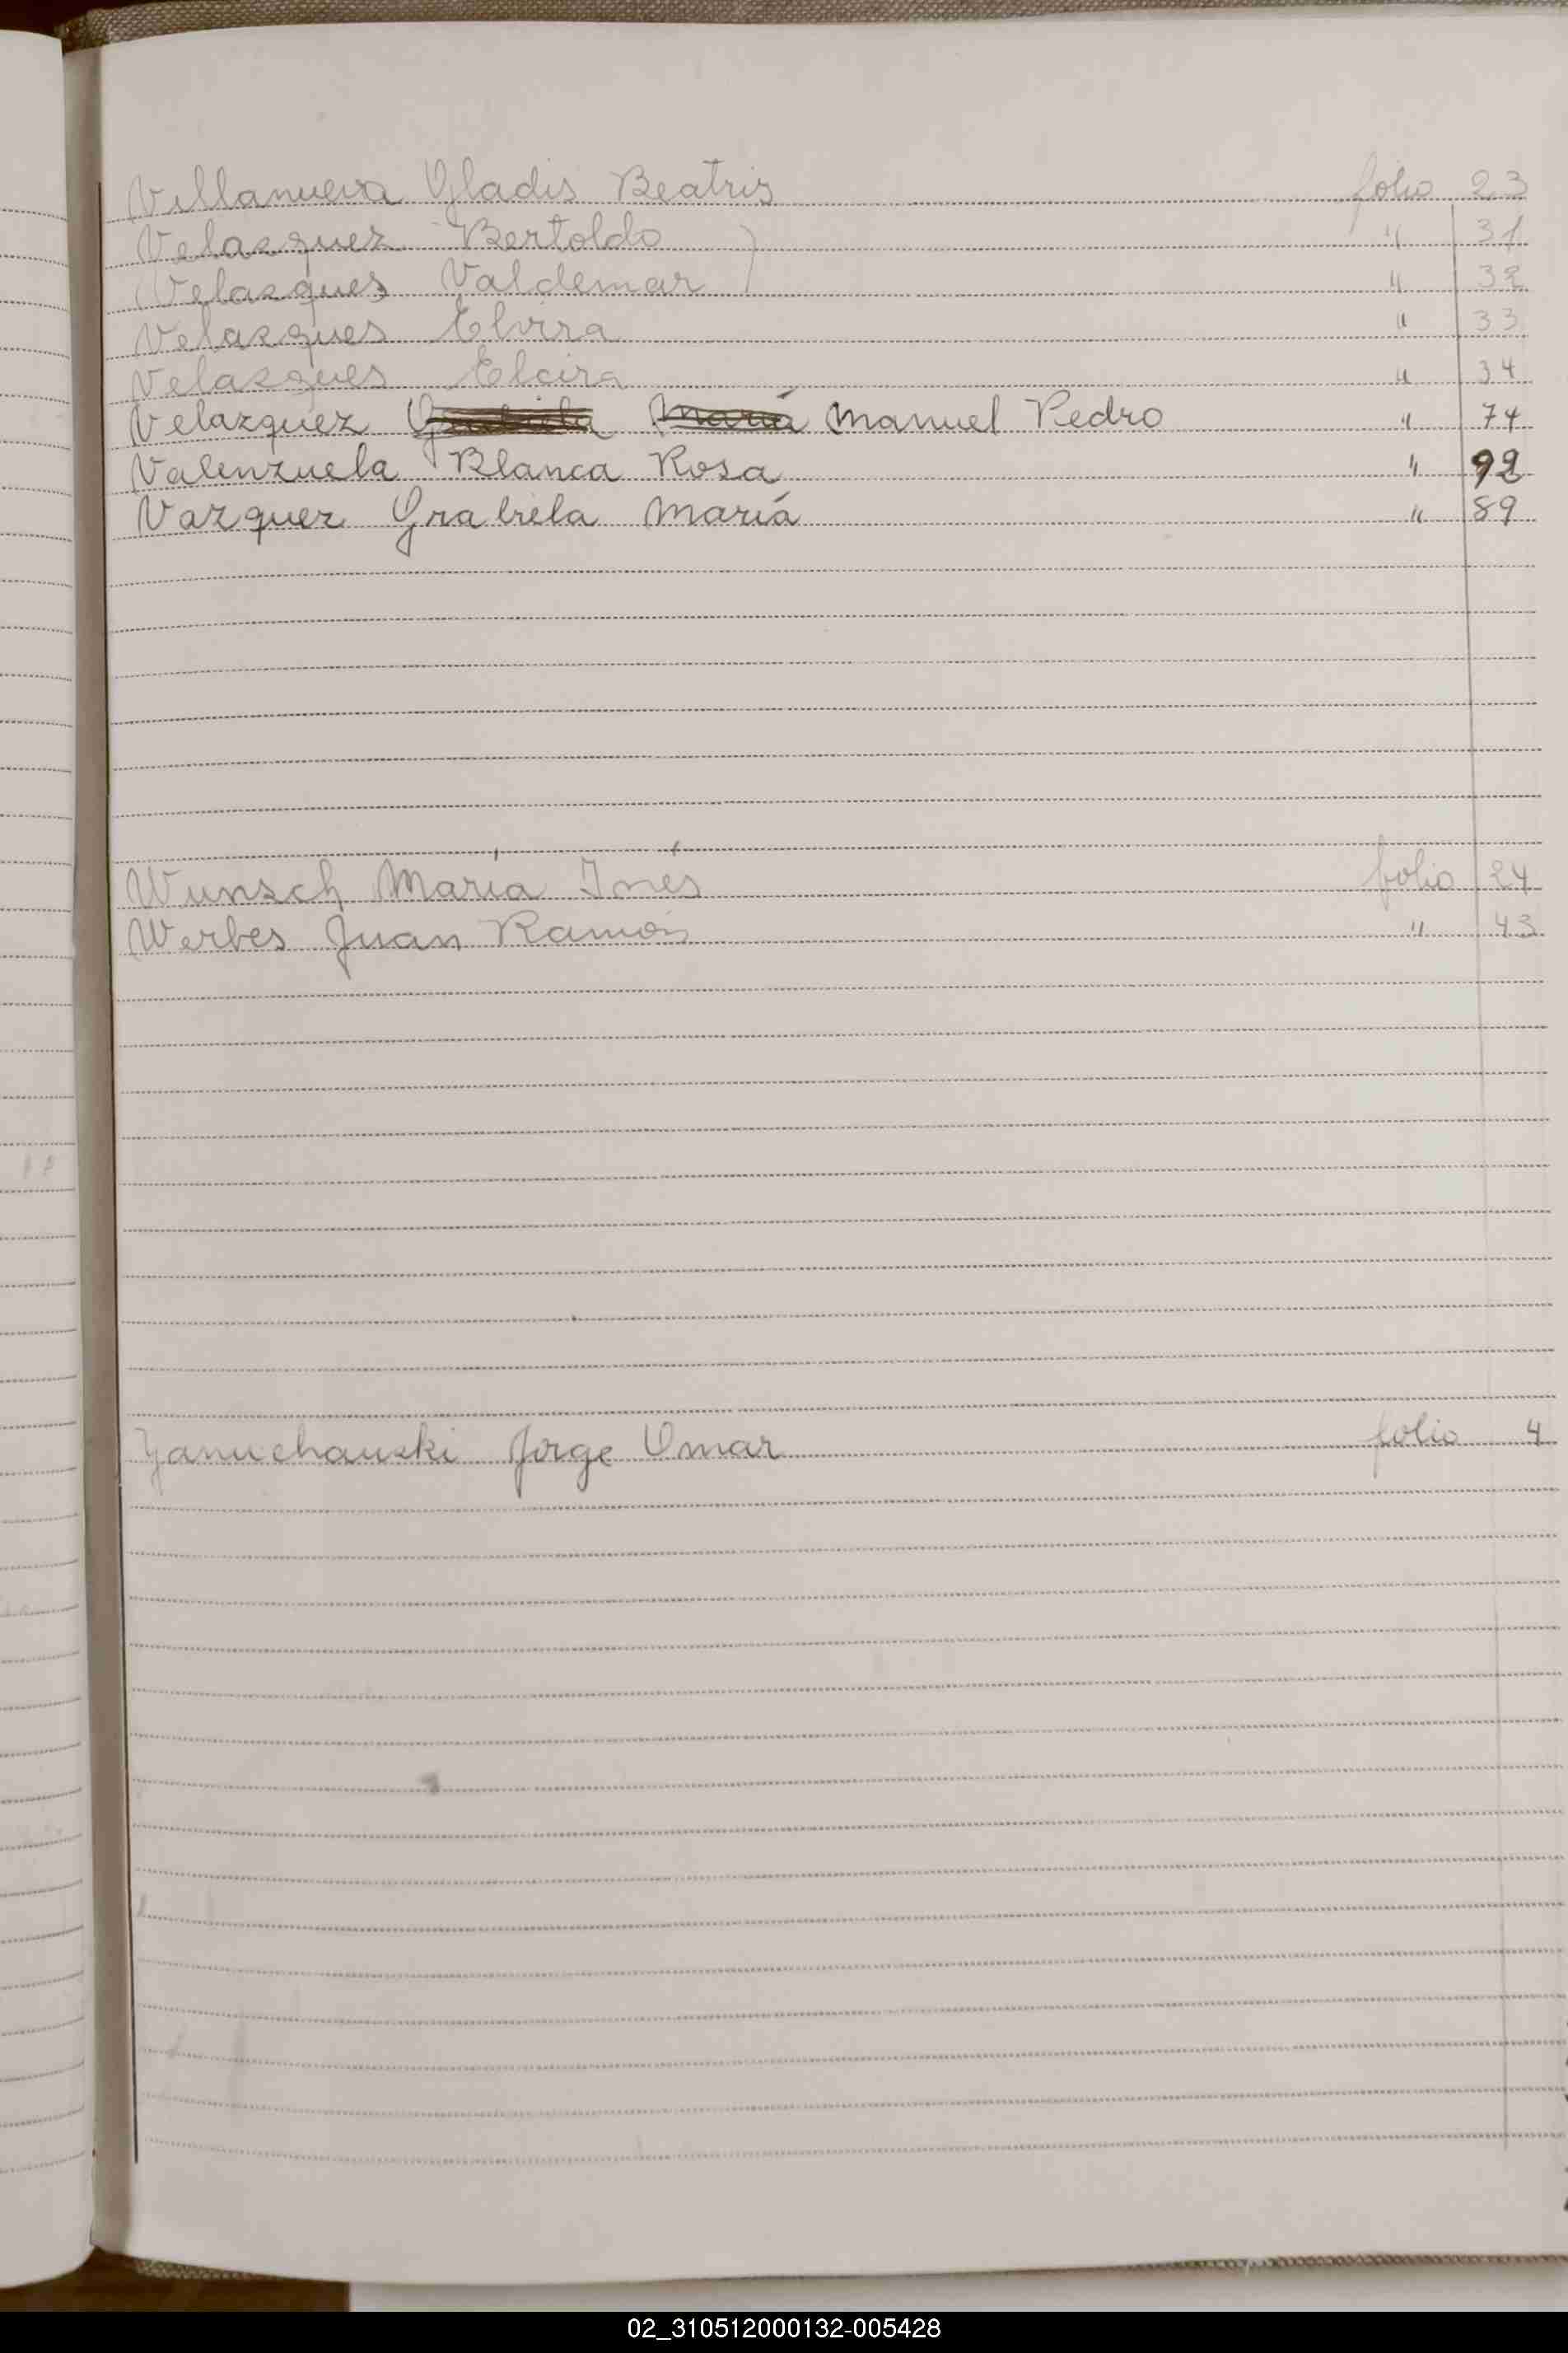 Villanueva Gladis Beatris folio 23
Velazquez Bertoldo " 31
Velazques Valdemar " 32
Velazques Elvira " 33
Velazques Elcira " 34
Velazquez Grabiela Mariá Manuel Pedro " 74
Valenzuela Blanca Rosa " 92
Vazquez Grabiela Mariá " 89
Wunsch María Inés folio 24
Werbes Juan Ramón " 43
Yanuchauski Jorge Omar folio 4
02_310512000132-005428